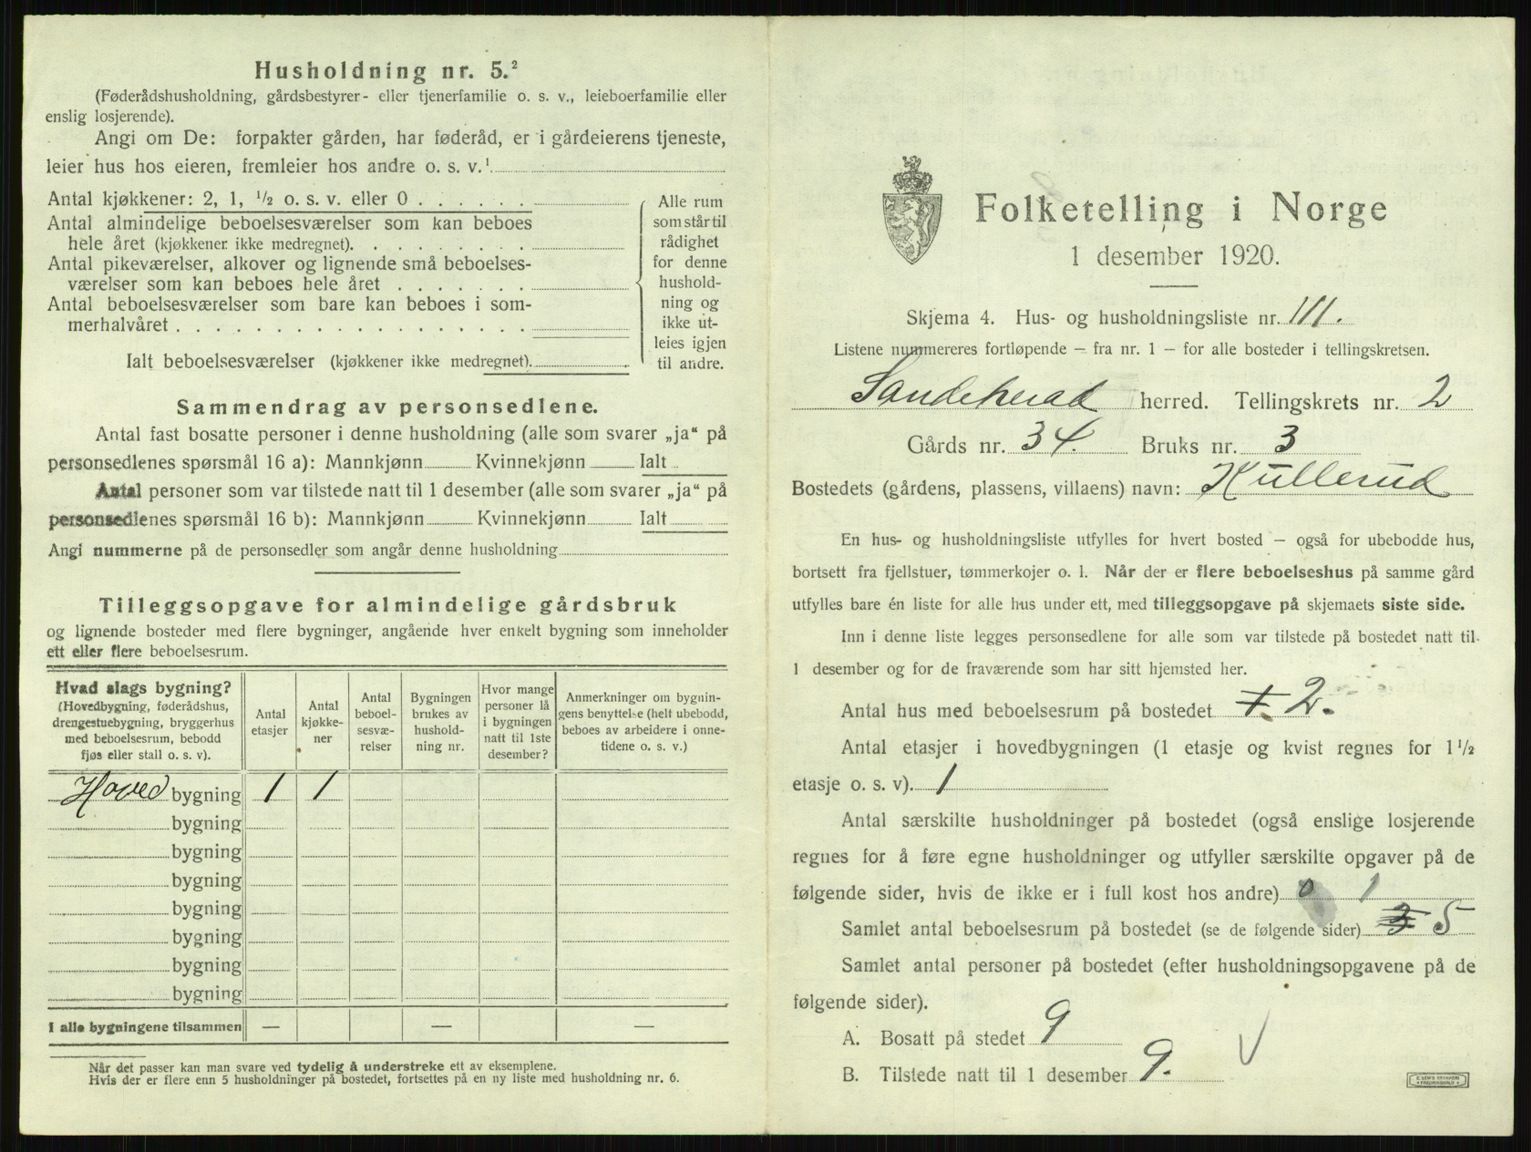 Husholdning nr. 5.²
(Føderådshusholdning, gårdsbestyrer- eller tjenerfamilie o. s. v., leieboerfamilie eller
enslig losjerende).
Angi om De: forpakter gården, har føderåd, er i gårdeierens tjeneste,
leier hus hos eieren, fremleier hos andre o. s. v.¹
Antal kjøkkener: 2, 1, ½ o. s. v. eller 0 . . . . . .
Antal almindelige beboelsesværelser som kan beboes
hele året (kjøkkener ikke medregnet). . . . . . . . .
Antal pikeværelser, alkover og lignende små beboelses-
værelser som kan beboes hele året . . . . . . .
Antal beboelsesværelser som bare kan beboes i som-
merhalvåret . . . . . . . . . . . . . . . . . .
Ialt beboelsesværelser (kjøkkener ikke medregnet).
Alle rum
som står til
rådighet
for denne
hushold-
ning og
ikke ut-
leies igjen
til andre.
Sammendrag av personsedlene.
Antal fast bosatte personer i denne husholdning (alle som svarer „ja“ på
personsedlenes spørsmål 16 a): Mannkjønn Kvinnekjønn Ialt
Antal personer som var tilstede natt til 1 desember (alle som svarer „ja“ på
personsedlenes spørsmål 16 b): Mannkjønn Kvinnekjønn Ialt
Angi nummerne på de personsedler som angår denne husholdning
Tilleggsopgave for almindelige gårdsbruk
og lignende bosteder med flere bygninger, angående hver enkelt bygning som inneholder
ett eller flere beboelsesrum.
Hvad slags bygning?
(Hovedbygning, føderådshus,
drengestuebygning, bryggerhus
med beboelsesrum, bebodd
fjøs eller stall o. s. v).
Antal
etasjer
Antal
kjøkke-
ner
Antal
beboel-
sesvæ-
relser
Bygningen
brukes av
hushold-
ning nr.
Hvor mange
personer lå
i bygningen
natt til 1ste
desember?
Anmerkninger om bygnin-
gens benyttelse (helt ubebodd,
beboes av arbeidere i onne-
tidene o. s. v.)
Hoved bygning 1 1
bygning
bygning
bygning
bygning
bygning
bygning
bygning
I alle bygningene tilsammen — — —
Når det passer kan man svare ved tydelig å understreke ett av eksemplene.
Hvis der er flere enn 5 husholdninger på bostedet, fortsettes på en ny liste med husholdning nr. 6.
Folketelling i Norge
1 desember 1920.
Skjema 4. Hus- og husholdningsliste nr. 111.
Listene nummereres fortløpende — fra nr. 1 — for alle bosteder i tellingskretsen.
Sandeherad herred. Tellingskrets nr. 2
Gårds nr. 34. Bruks nr. 3
Bostedets (gårdens, plassens, villaens) navn: Kullerud
En hus- og husholdningsliste utfylles for hvert bosted — også for ubebodde hus,
bortsett fra fjellstuer, tømmerkojer o. l. Når der er flere beboelseshus på samme gård
utfylles bare én liste for alle hus under ett, med tilleggsopgave på skjemaets siste side.
Inn i denne liste legges personsedlene for alle som var tilstede på bostedet natt til
1 desember og for de fraværende som har sitt hjemsted her.
Antal hus med beboelsesrum på bostedet 1. 2.
Antal etasjer i hovedbygningen (1 etasje og kvist regnes for 1½
etasje o. s. v). 1
Antal særskilte husholdninger på bostedet (også enslige losjerende
regnes for å føre egne husholdninger og utfyller særskilte opgaver på de
følgende sider, hvis de ikke er i full kost hos andre) 0 1
Samlet antal beboelsesrum på bostedet (se de følgende sider) 3 5
Samlet antal personer på bostedet (efter husholdningsopgavene på de
følgende sider).
A. Bosatt på stedet 9
B. Tilstede natt til 1 desember 9.